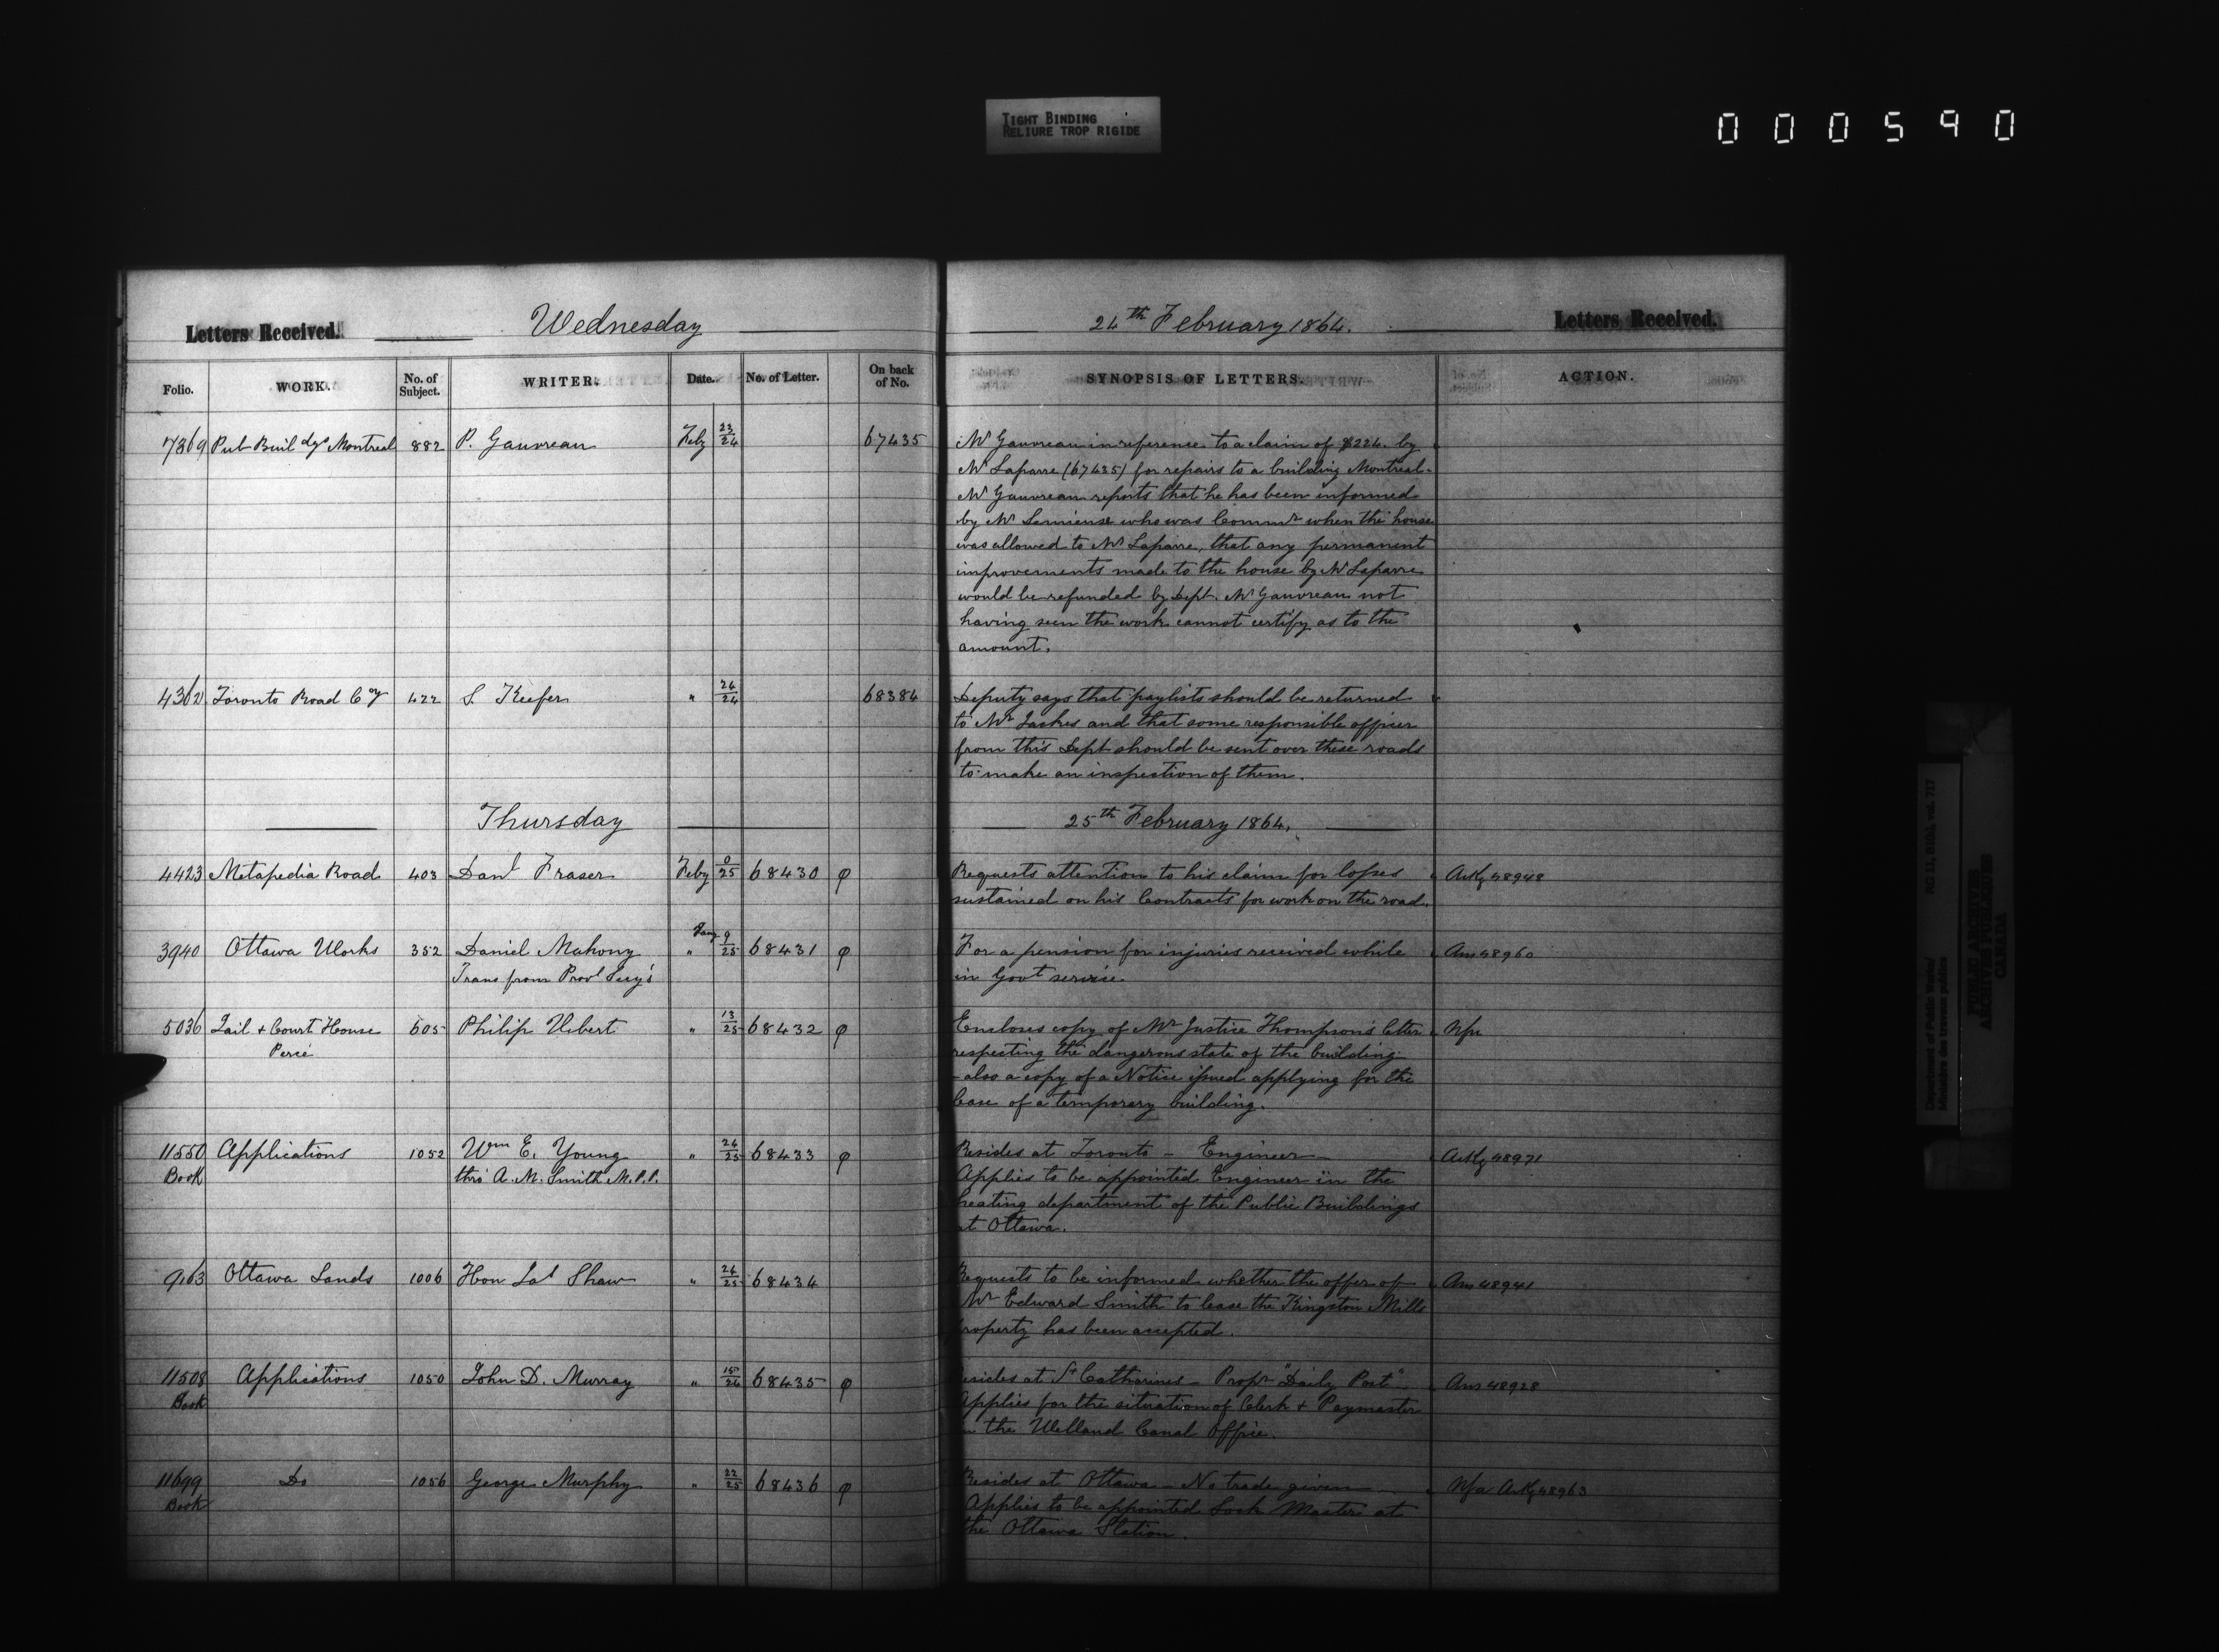 TIGHT BINDING
RELIURE TROP RIGIDE
000590
Letters Received. Wednesday 24th February 1864. Letters Received.
Folio. WORK. No. of Subject. WRITER. Date. No. of Letter. On back of No. SYNOPSIS OF LETTERS. ACTION.
7369 Pub Buildgs Montreal 882 P. Gauvreau Feby 23/24 67435 Mr Gauvreau in reference to a claim of $224. by
Mr Laparre (67435) for repairs to a building Montreal.
Mr Gauvreau reports that he has been informed
by Mr Lemieux who was Commr when the house
was allowed to Mr Laparre, that any permanent
improvements made to the house by Mr Laparre
would be refunded by Dept. Mr Gauvreau not
having seen the work cannot certify as to the
amount.
4362 Toronto Road Coy 422 S. Keefer " 24/24 68384 Deputy says that paylists should be returned
to Mr Jaches and that some responsible officer
from this Dept should be sent over these roads
to make an inspection of them.
Thursday 25th February 1864.
4423 Metapedia Road 403 Danl Fraser Feby 0/25 68430 φ Requests attention to his claim for losses Ackg 48948
sustained on his Contracts for work on the road.
3940 Ottawa Works 352 Daniel Mahony Jany " 9/25 68431 φ For a pension for injuries received while Ans 48960
Trans from Provl Secy's in Govt service.
5036 Jail & Court House 605 Philip Vibert " 13/25 68432 φ Encloses copy of Mr Justice Thompson's letter Nfa
Percé respecting the dangerous state of the building
- also a copy of a Notice issued applying for the
lease of a temporary building.
11550 Applications 1052 Wm E. Young " 24/25 68433 φ Resides at Toronto - Engineer - Ackg 48971
Book thro' A. M. Smith M.P.P. Applies to be appointed Engineer in the
heating department of the Public Buildings
at Ottawa.
9163 Ottawa Lands 1006 Hon Jas Shaw " 24/25 68434 Requests to be informed whether the offer of Ans 48941
Mr Edward Smith to lease the Kingston Mills
property has been accepted.
11508 Applications 1050 John D. Murray " 15/24 68435 φ Resides at St Catharines - Propr "Daily Post" Ans 48928
Book Applies for the situation of Clerk & Paymaster
in the Welland Canal Office.
11699 Do 1056 George Murphy " 22/25 68436 φ Resides at Ottawa - No trade given - Nfa Ackg 48963
Book Applies to be appointed Lock Master at
the Ottawa Station.
Department of Public Works/ RG 11, B1(b), vol. 717
Ministère des travaux publics
PUBLIC ARCHIVES
ARCHIVES PUBLIQUES
CANADA